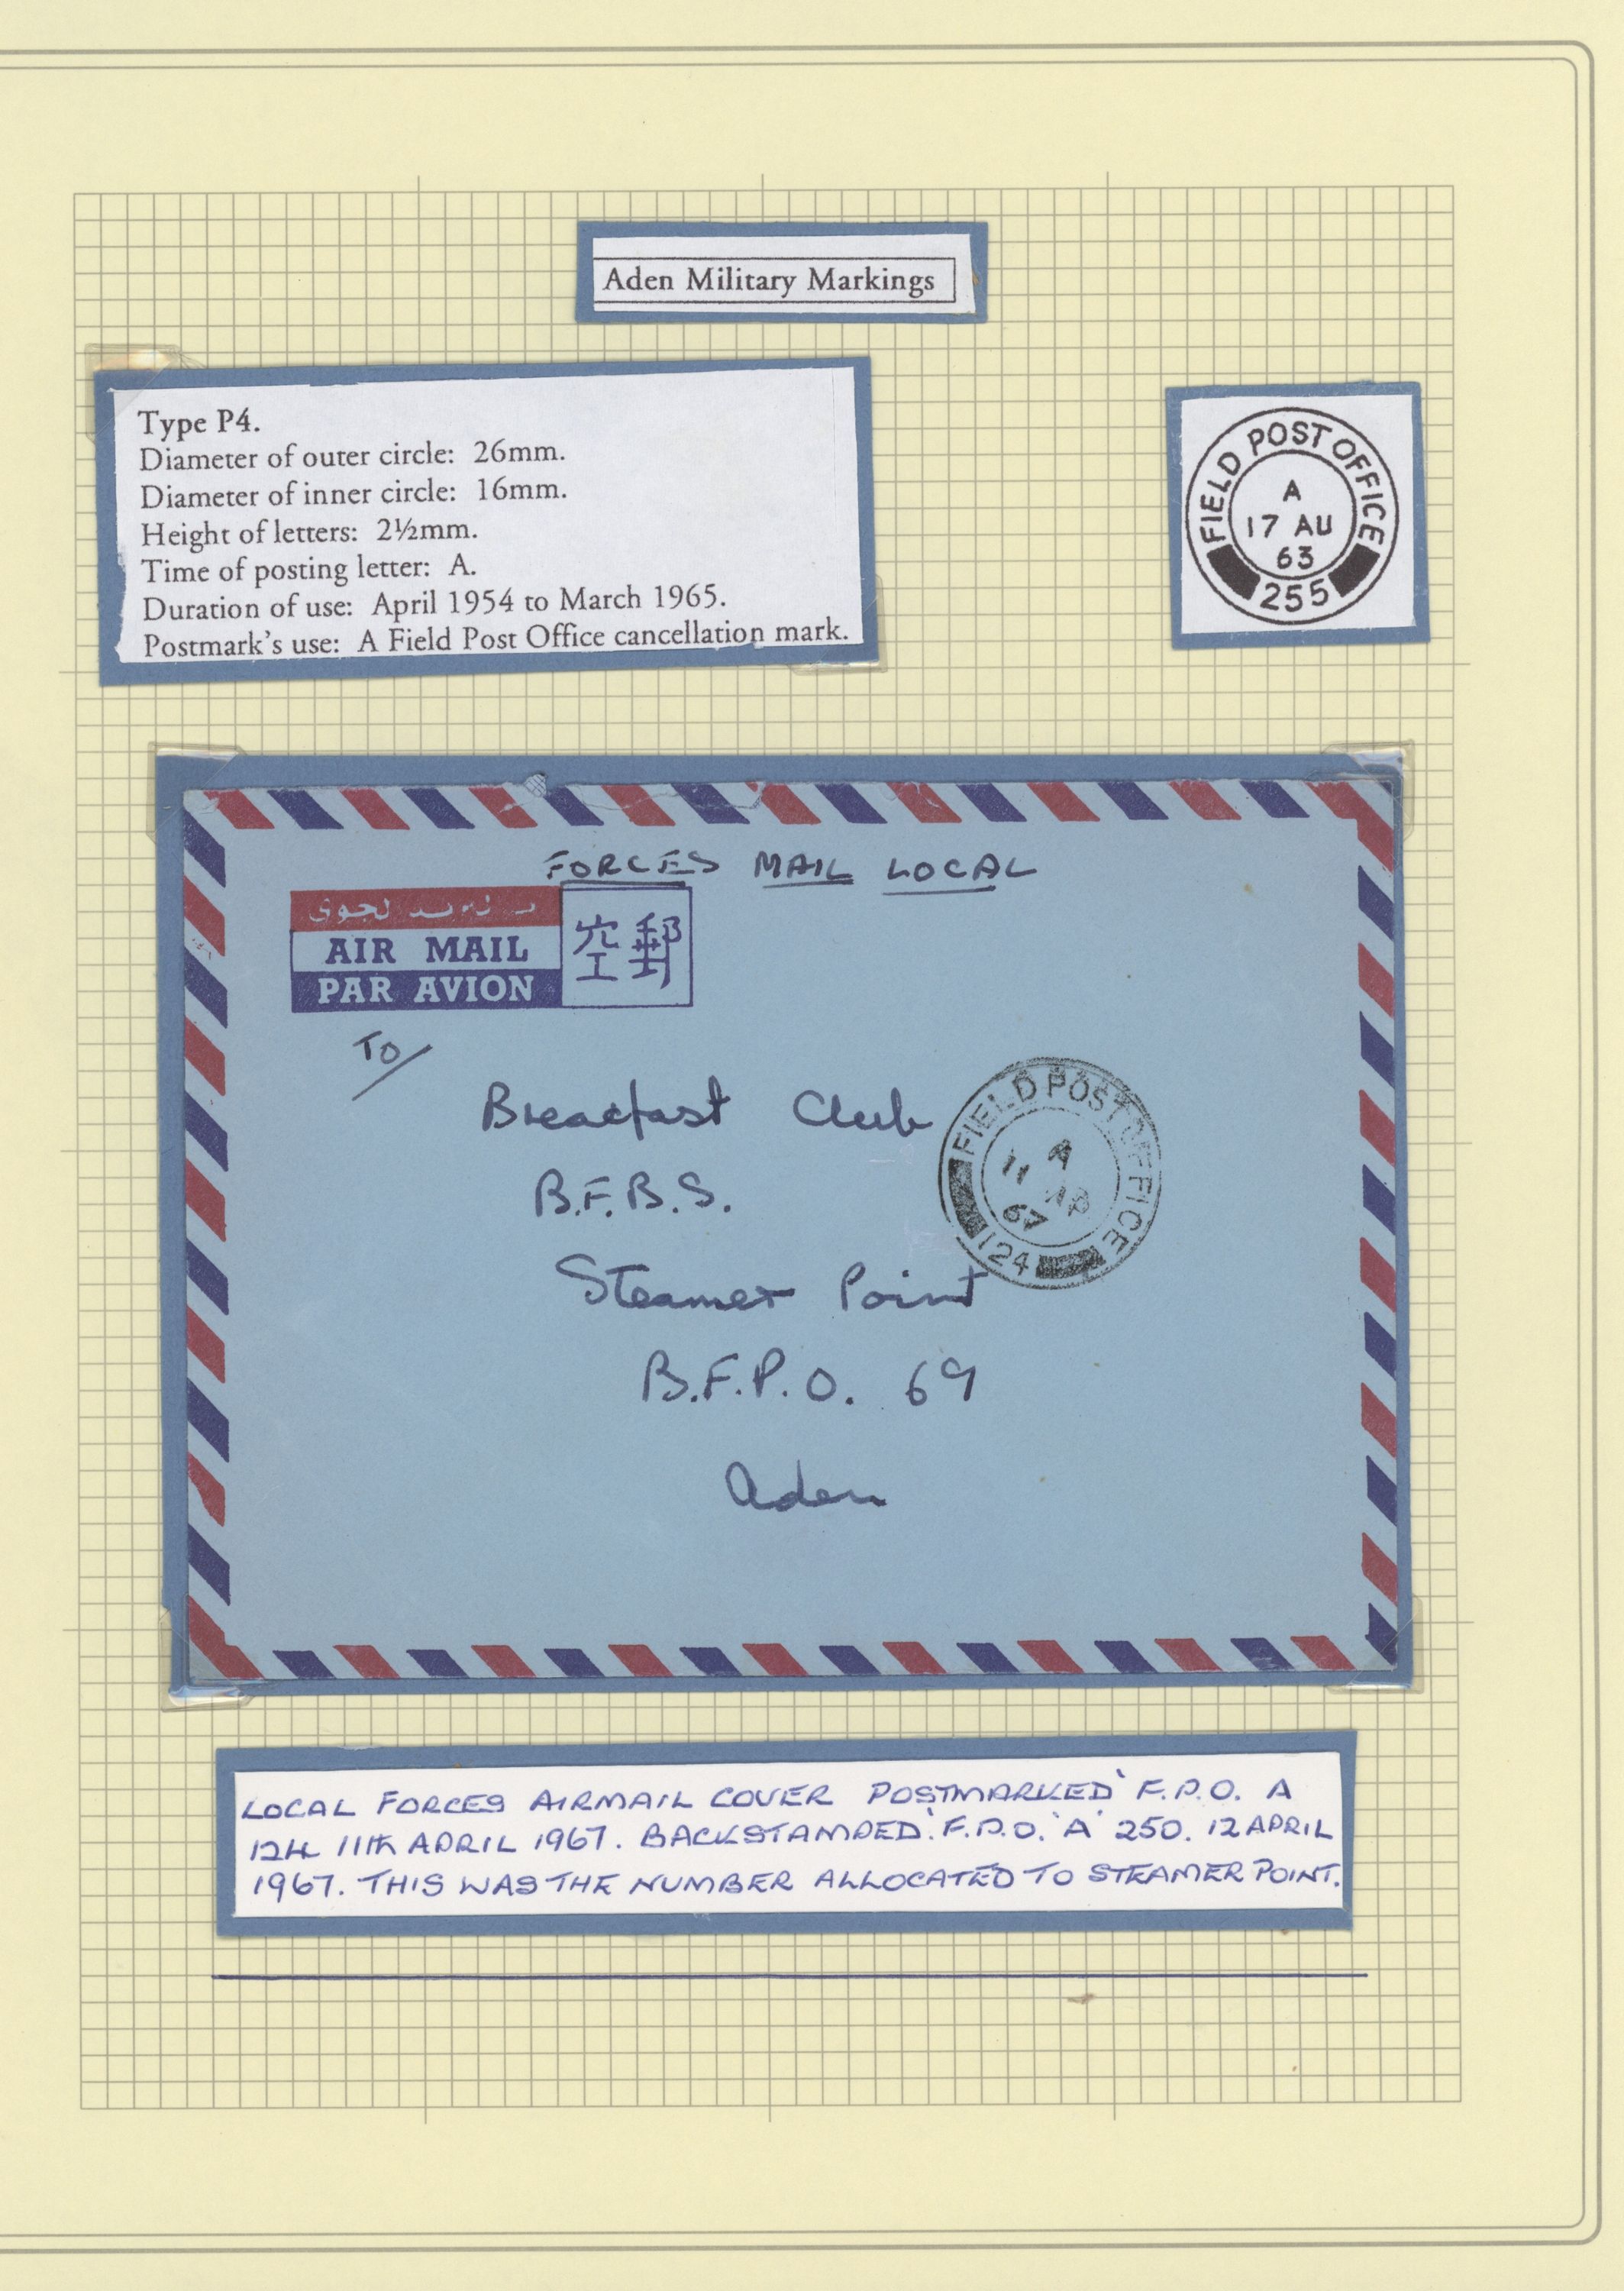 Aden Military Markings
Type P4.
Diameter of outer circle: 26mm.
Diameter of inner circle: 16mm.
Height of letters: 2½mm.
Time of posting letter: A.
Duration of use: April 1954 to March 1965.
Postmark's use: A Field Post Office cancellation mark.
FIELD POST OFFICE
A
17 AU
63
255
FORCES MAIL LOCAL
AIR MAIL
PAR AVION
空郵
To/
Breakfast Club
B.F.B.S.
Steamer Point
B.F.P.O. 69
Aden
FIELD POST OFFICE
A
11 AP
67
124
LOCAL FORCES AIRMAIL COVER POSTMARKED 'F.P.O. A
124 11th APRIL 1967. BACKSTAMPED 'F.P.O. 'A' 250. 12 APRIL
1967. THIS WAS THE NUMBER ALLOCATED TO STEAMER POINT.